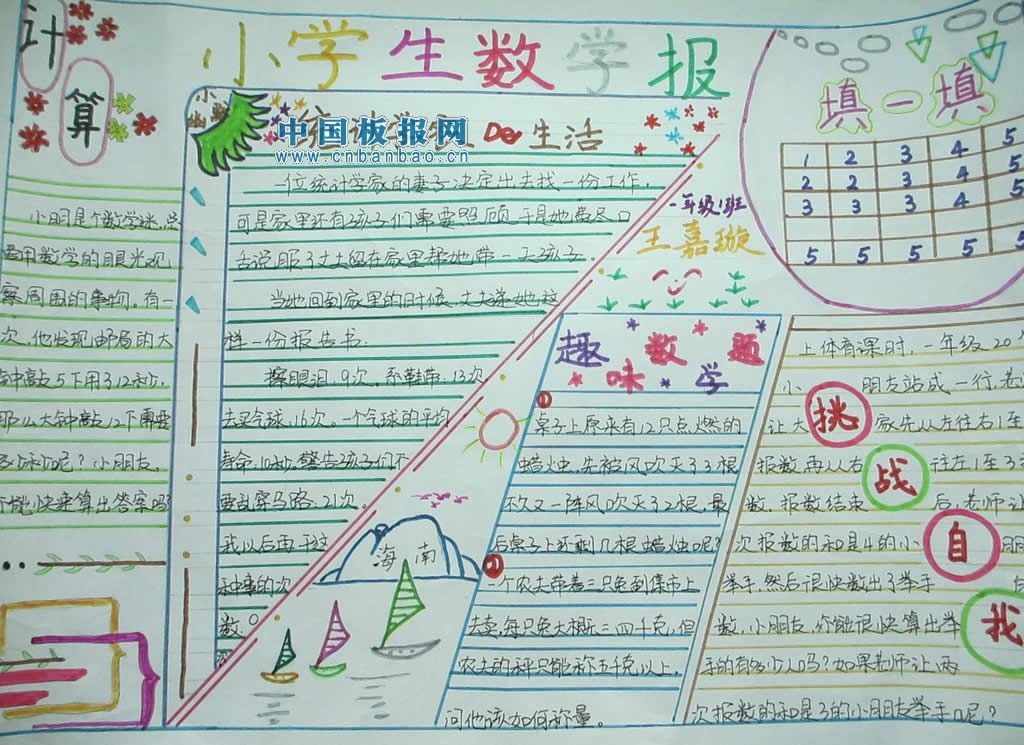 小学生数学报
计
算
小明是个数学迷,总
用数学的眼光观
察周围的事物.有一
次,他发现邮局的大
钟敲5下用了12秒,
那么大钟敲12下需要
多少秒呢?小朋友,
你能快速算出答案吗
小
幽
De生活
中国板报网
www.cnbanbao.cn
一位统计学家的妻子决定出去找一份工作,
可是家里还有2孩子们需要照顾.于是她费尽口
舌说服了丈夫留在家里帮她带一天孩子.
当她回到家里的时候,丈夫递她这
样一份报告书.
擦眼泪,9次.系鞋带:13次
去买气球,16次.一个气球的平均
寿命,10秒.警告孩子们不
要乱穿马路:21次.
我以后再干这
种事的次
数:0
海南
一年级1班
王嘉璇
趣味数学题
①
桌子上原来有12只点燃的
蜡烛,先被风吹灭了3根
不久又一阵风吹灭了2根,最
后桌子上还剩几根蜡烛呢?
一个农夫带着三只兔到集市上
去卖,每只兔大概三四千克,但
农夫的秤只能称五千克以上,
问他该如何称量。
填一填
1 2 3 4 5
2 2 3 4 5
3 3 3 4 5
5 5 5 5 5
挑
战
自
我
上体育课时,一年级20
小朋友站成一行,老
让大家先从左往右1至
报数再从右往左1至3
数.报数结束后,老师让
次报数的和是4的小朋
举手,然后很快数出了举手
数,小朋友,你能很快算出举
手的有多少人吗?如果老师让两
次报数的和是3的小朋友举手呢?